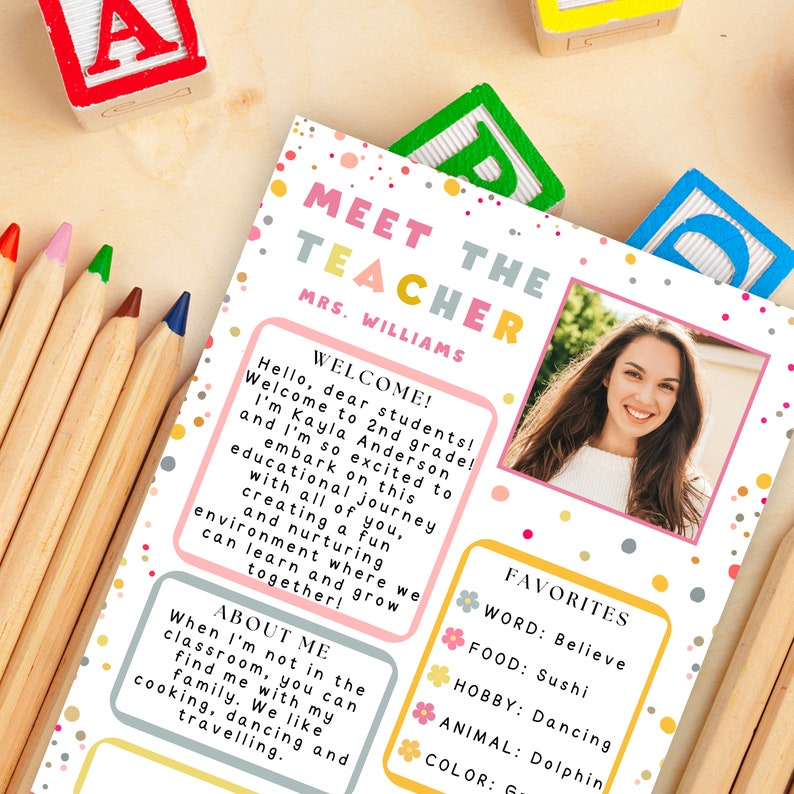 A
P
D
MEET THE
TEACHER
MRS. WILLIAMS
WELCOME!
Hello, dear students!
Welcome to 2nd grade!
I'm Kayla Anderson
and I'm so excited to
embark on this
educational journey
with all of you,
creating a fun
and nurturing
environment where we
can learn and grow
together!
ABOUT ME
When I'm not in the
classroom, you can
find me with my
family. We like
cooking, dancing and
travelling.
FAVORITES
WORD: Believe
FOOD: Sushi
HOBBY: Dancing
ANIMAL: Dolphin
COLOR: